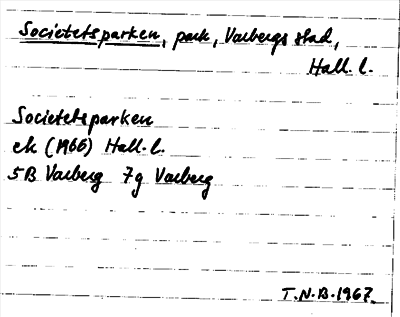 Societetsparken, park, Varbergs stad,
Hall. l.
Societetsparken
ek (1966) Hall. l.
5B Varberg 7g Varberg
T.N.B. 1967.